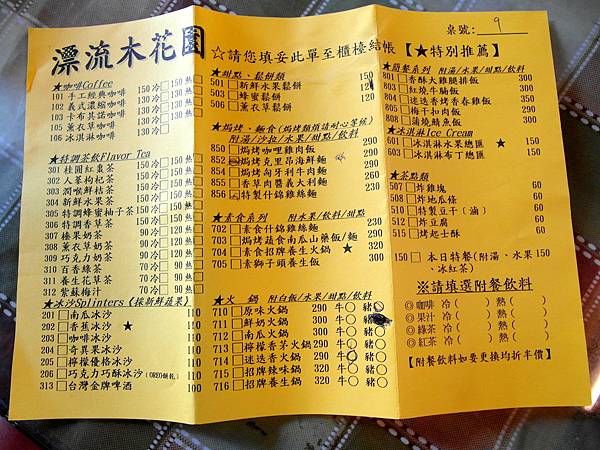 漂流木花園
☆請您填妥此單至櫃檯結帳【★特別推薦】
桌號: 9
★咖啡Coffee
101 手工經典咖啡 150冷 150熱
102 義式濃縮咖啡
103 卡布其諾咖啡
105 薰衣草咖啡
106 冰淇淋咖啡
★特調茶飲Flavor Tea
301 桂圓紅棗茶 150冷 150熱
302 人蔘枸杞茶
303 潤喉鮮桔茶
304 新鮮水果茶
305 特調蜂蜜柚子茶
306 特調香草茶
307 榛果奶茶
308 薰衣草奶茶
309 巧克力奶茶
310 百香綠茶
311 養生花草茶
312 紫蘇梅汁
★冰沙Splinters《採新鮮蔬果》
201 □南瓜冰沙
202 □香蕉冰沙 ★
203 □咖啡冰沙
204 □奇異果冰沙
205 □檸檬優格冰沙
206 □巧克力巧酥冰沙(OREO餅乾) 110
313 □台灣金牌啤酒 100
★甜點、鬆餅類
501 □新鮮水果鬆餅 150
503 □蜂蜜鬆餅 120
506 □薰衣草鬆餅
★焗烤、麵食(焗烤類煩請耐心等候)
附湯/沙拉/水果/甜點/飲料
850 □焗烤咖哩雞肉飯 290
852 □焗烤克里昂海鮮麵 290
854 □焗烤匈牙利牛肉麵 290
855 □香草肉醬義大利麵 290
856 □特製什錦雞絲麵 290
★素食系列 附水果/飲料/甜點
702 □素食什錦雞絲麵 230
703 □焗烤蔬食南瓜山藥飯/麵 290
704 □素食招牌養生火鍋 ★ 320
705 □素獅子頭養生飯
★火 鍋 附白飯/水果/甜點/飲料
710 □原味火鍋 290 牛○ 豬○
711 □鮮奶火鍋 290 牛○
712 □南瓜火鍋 290 牛○ 豬○
713 □檸檬香茅火鍋 290 牛○ 豬○
714 □迷迭香火鍋 290 牛○ 豬○
715 □招牌辣味鍋 320 牛○ 豬○
716 □招牌養生鍋 320 牛○ 豬○
★簡餐系列 附湯/水果/甜點/飲料
801 □香酥大雞腿排飯 300
803 □紅燒牛腩飯 300
804 □迷迭香烤香春雞飯 300
805 □梅干扣肉飯 300
808 □蒲燒鯛魚飯 300
★冰淇淋Ice Cream
601 □冰淇淋水果總匯 ★ 175
603 □冰淇淋布丁總匯 175
★茶點類
507 □炸雞塊 60
508 □炸地瓜條 60
510 □特製豆干〔滷〕 60
512 □炸豆腐 60
515 □烤起士酥 60
150 □ 本日特餐(附湯、水果 150
、冰紅茶)
※請填選附餐飲料
◎咖啡 冷( ) 熱( )
◎果汁 冷( ) 熱( )
◎綠茶 冷( ) 熱( )
◎紅茶 冷( ) 熱( )
【附餐飲料如要更換均折半價】